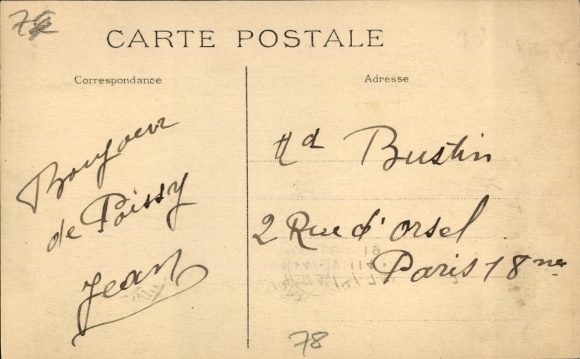 CARTE POSTALE
Correspondance
Adresse
Bonjour
de Poissy
Jean
Md Bustin
2 Rue d'orsel
Paris 18me
78